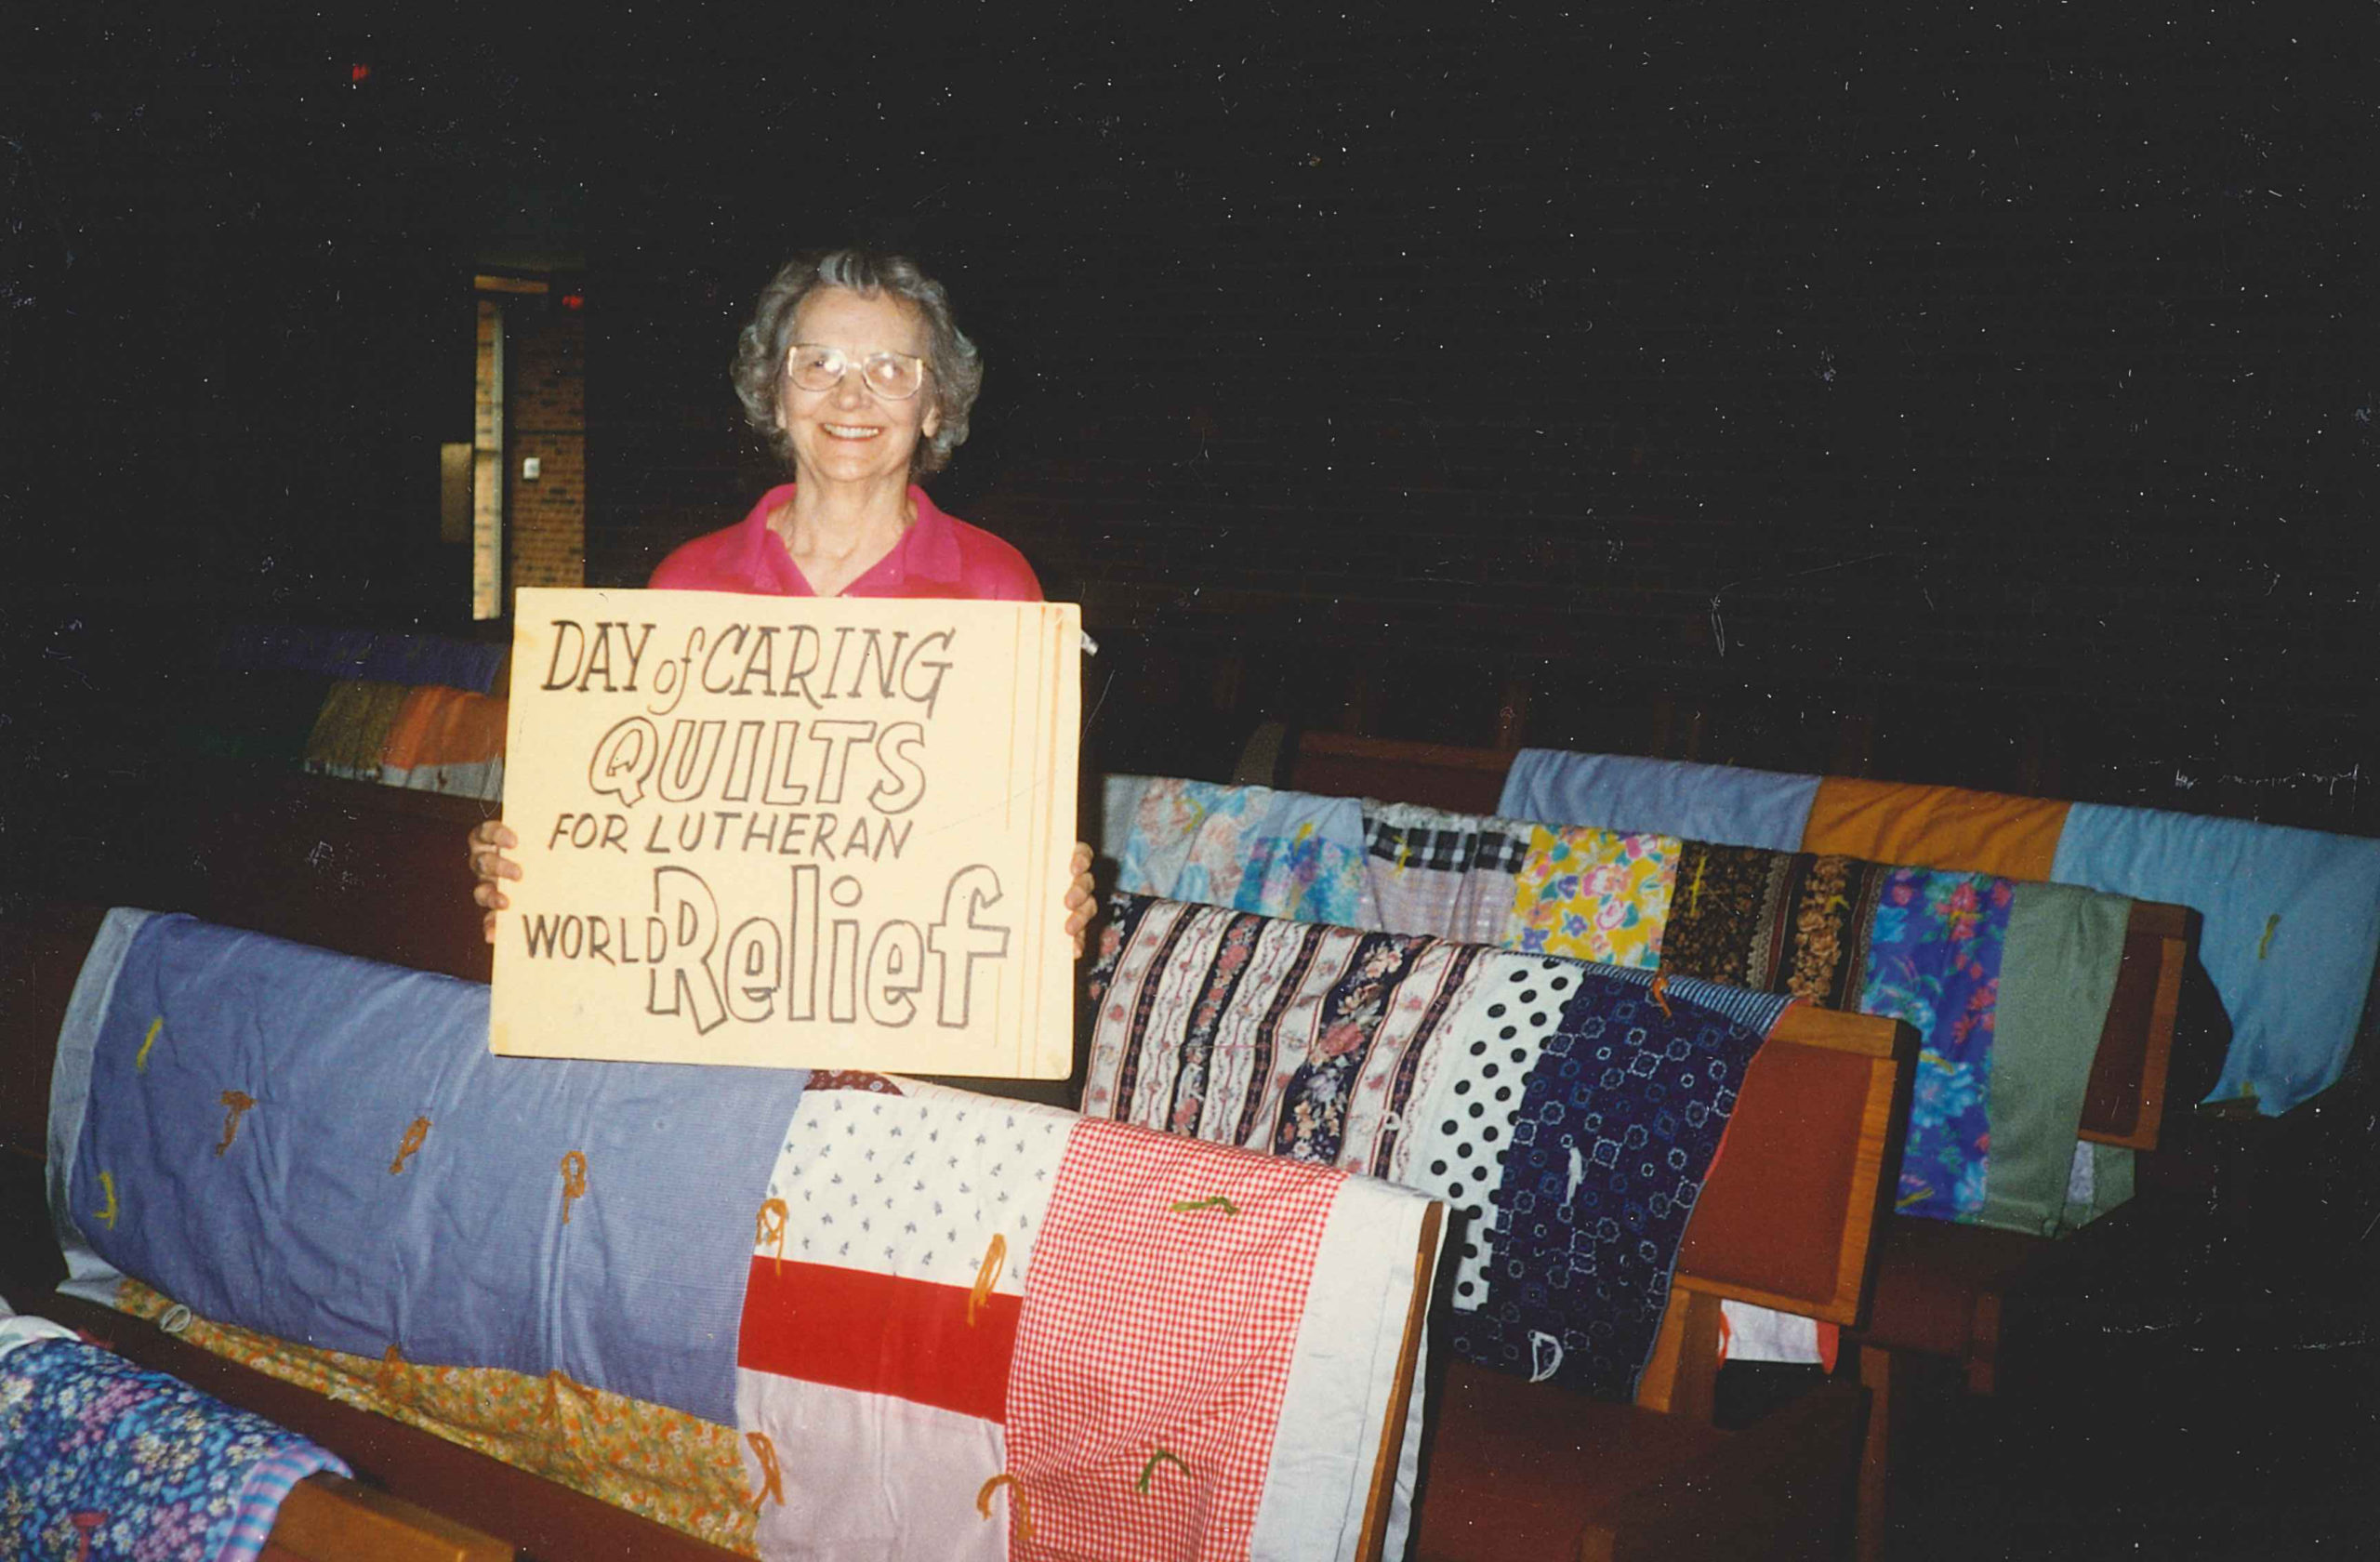 DAY of CARING
QUILTS
FOR LUTHERAN
WORLD Relief